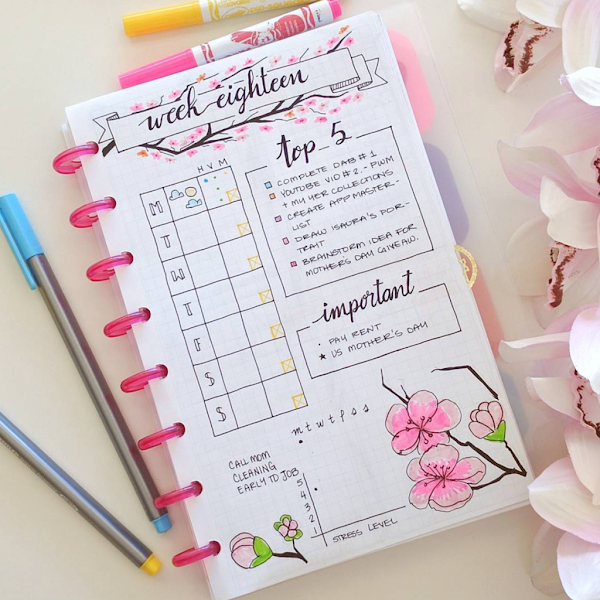 week eighteen
H V M
M
T
W
T
F
S
S
top 5
COMPLETE DAB # 1
YOUTUBE VID # 2 - PWM
+ MY YER COLLECTIONS
CREATE APP MASTER-
LIST
DRAW ISAURA'S POR-
TRAIT
BRAINSTORM IDEA FOR
MOTHER'S DAY GIVEAW.
important
· PAY RENT
★ US MOTHER'S DAY
m t w t f s s
CALL MOM
CLEANING
EARLY TO JOB
5
4
3
2
1
STRESS LEVEL